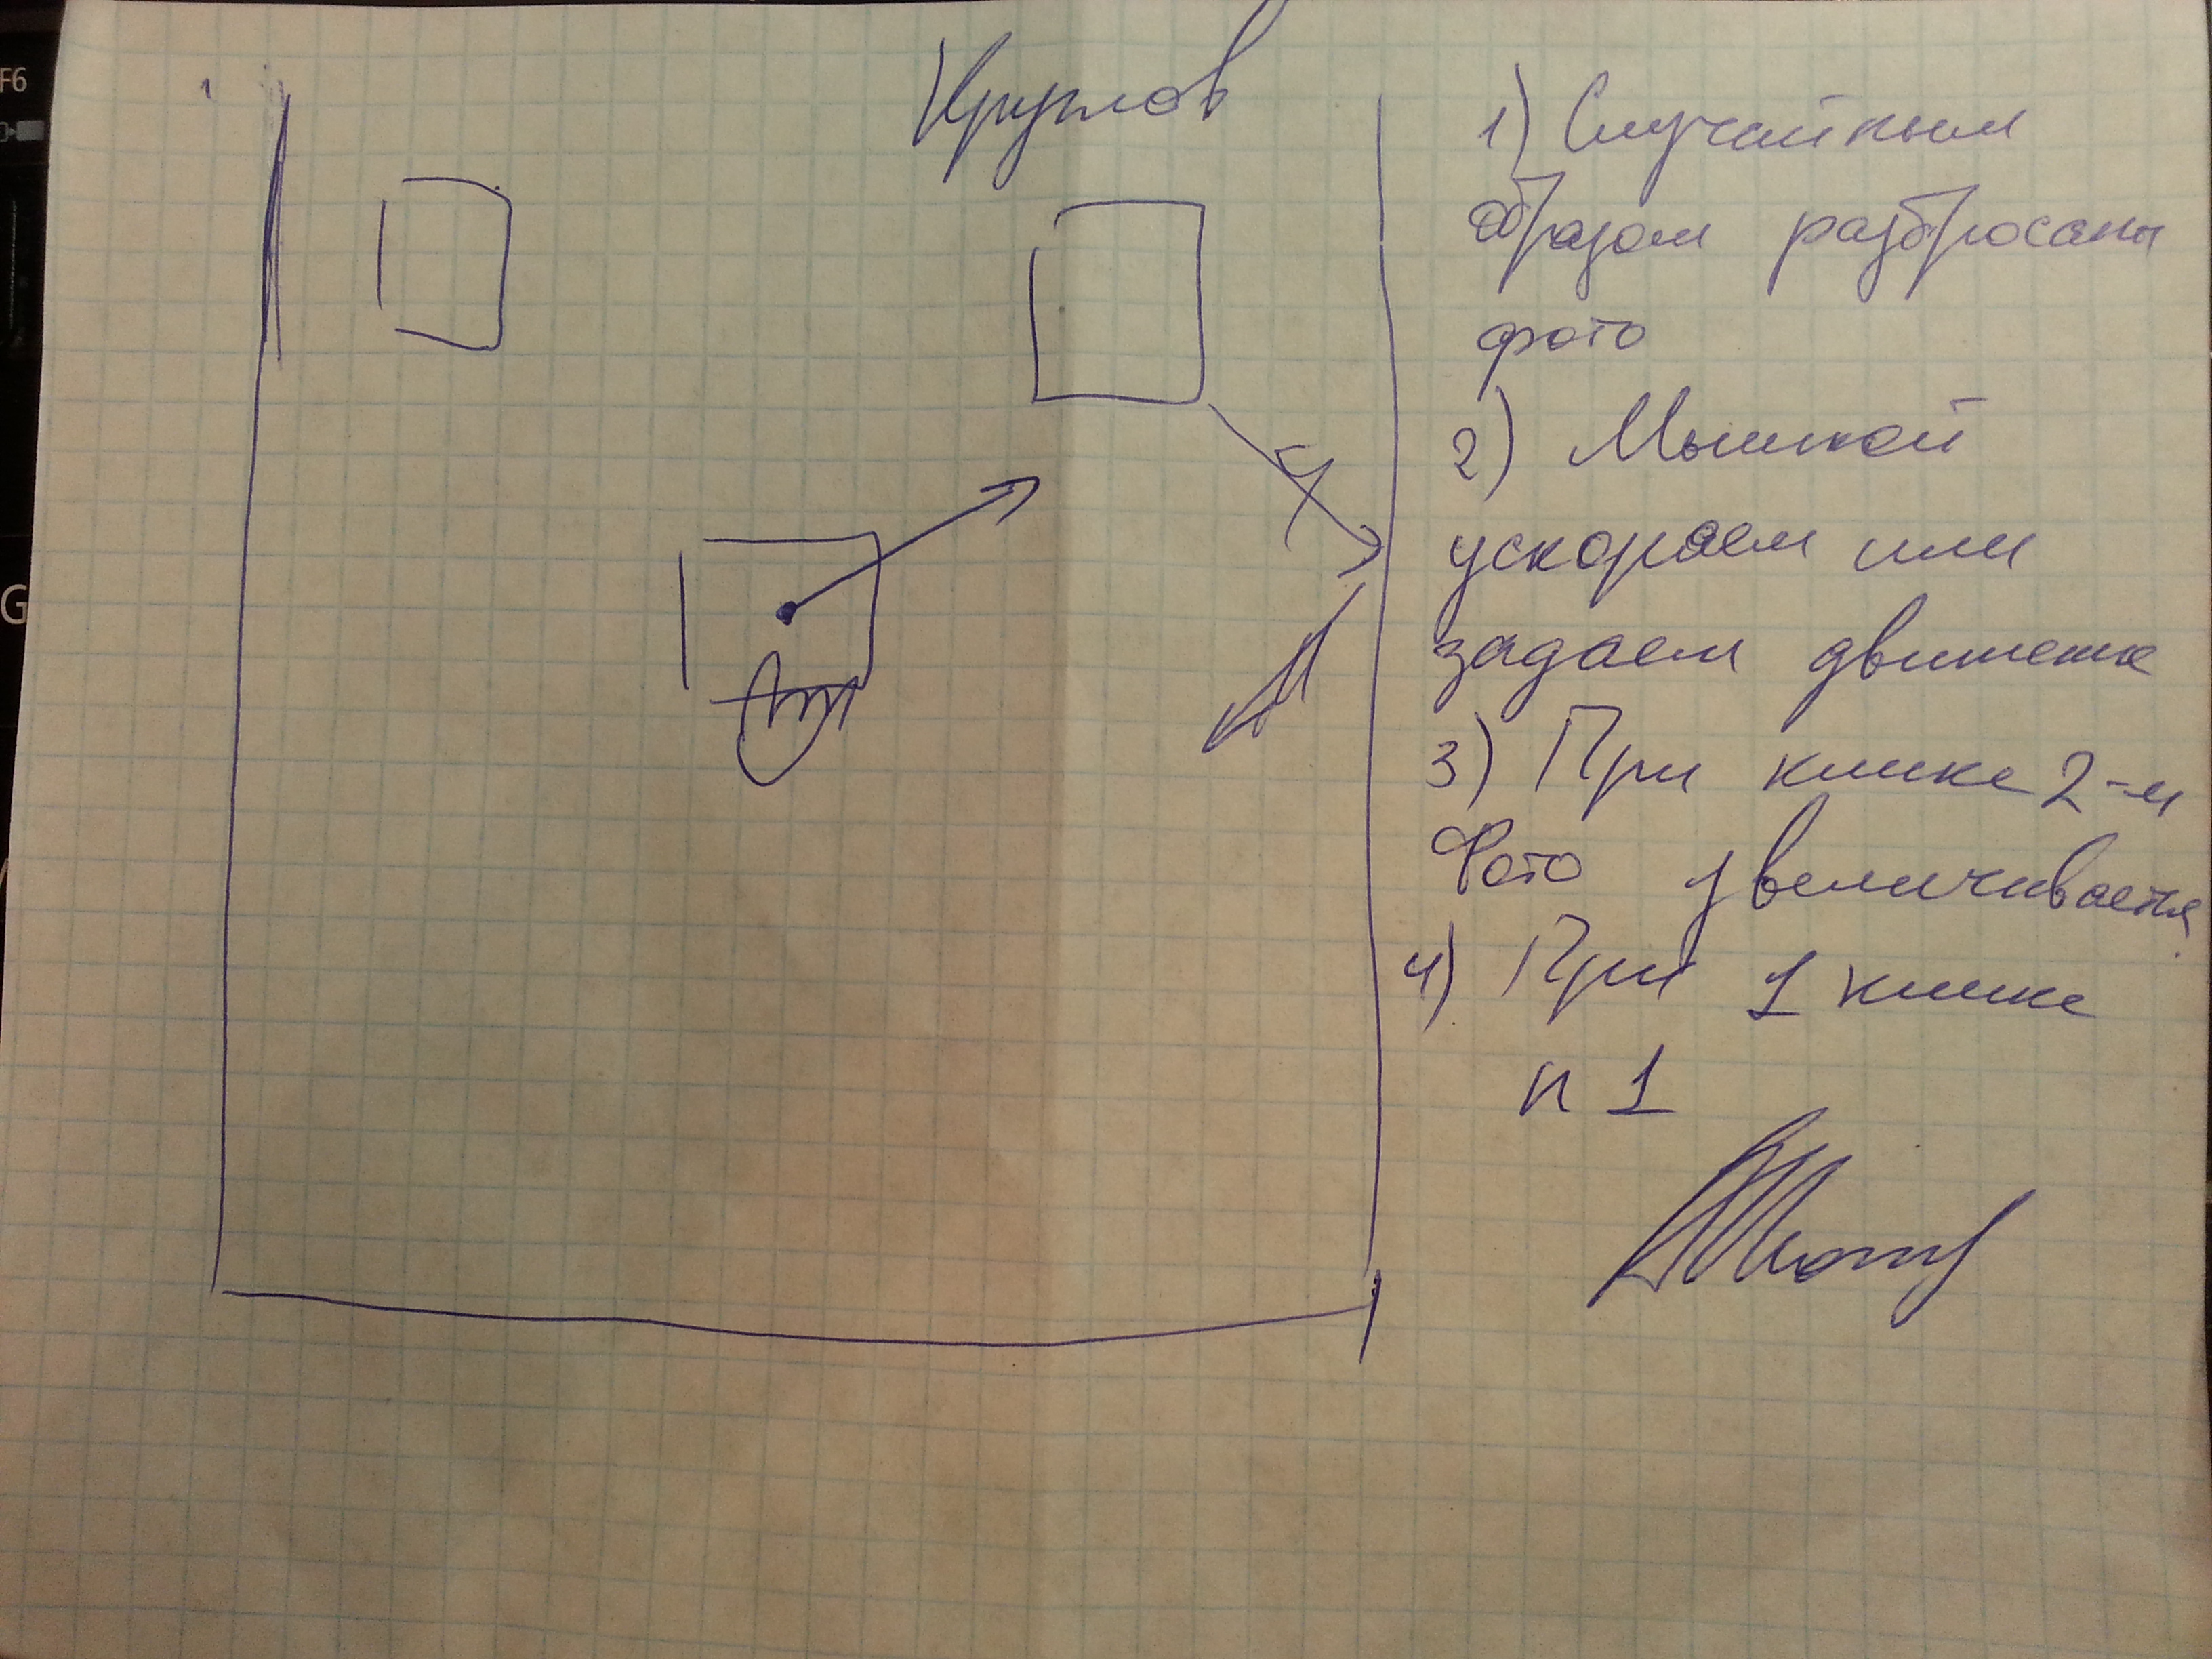 F6
G
Круглов
1) Случайным
образом разбросаны
фото
2) Мышкой
ускоряем или
задаем движение
3) При клике 2-м
Фото увеличивается
4) При 1 клике
п 1